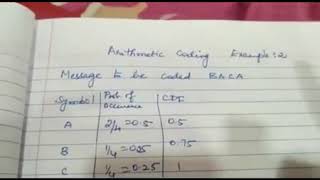 Arithmetic Coding Example:2
Message to be coded BACA
Symbol Prob of occurence CDF
A 2/4 = 0.5 0.5
B 1/4 = 0.25 0.75
C 1/4 = 0.25 1